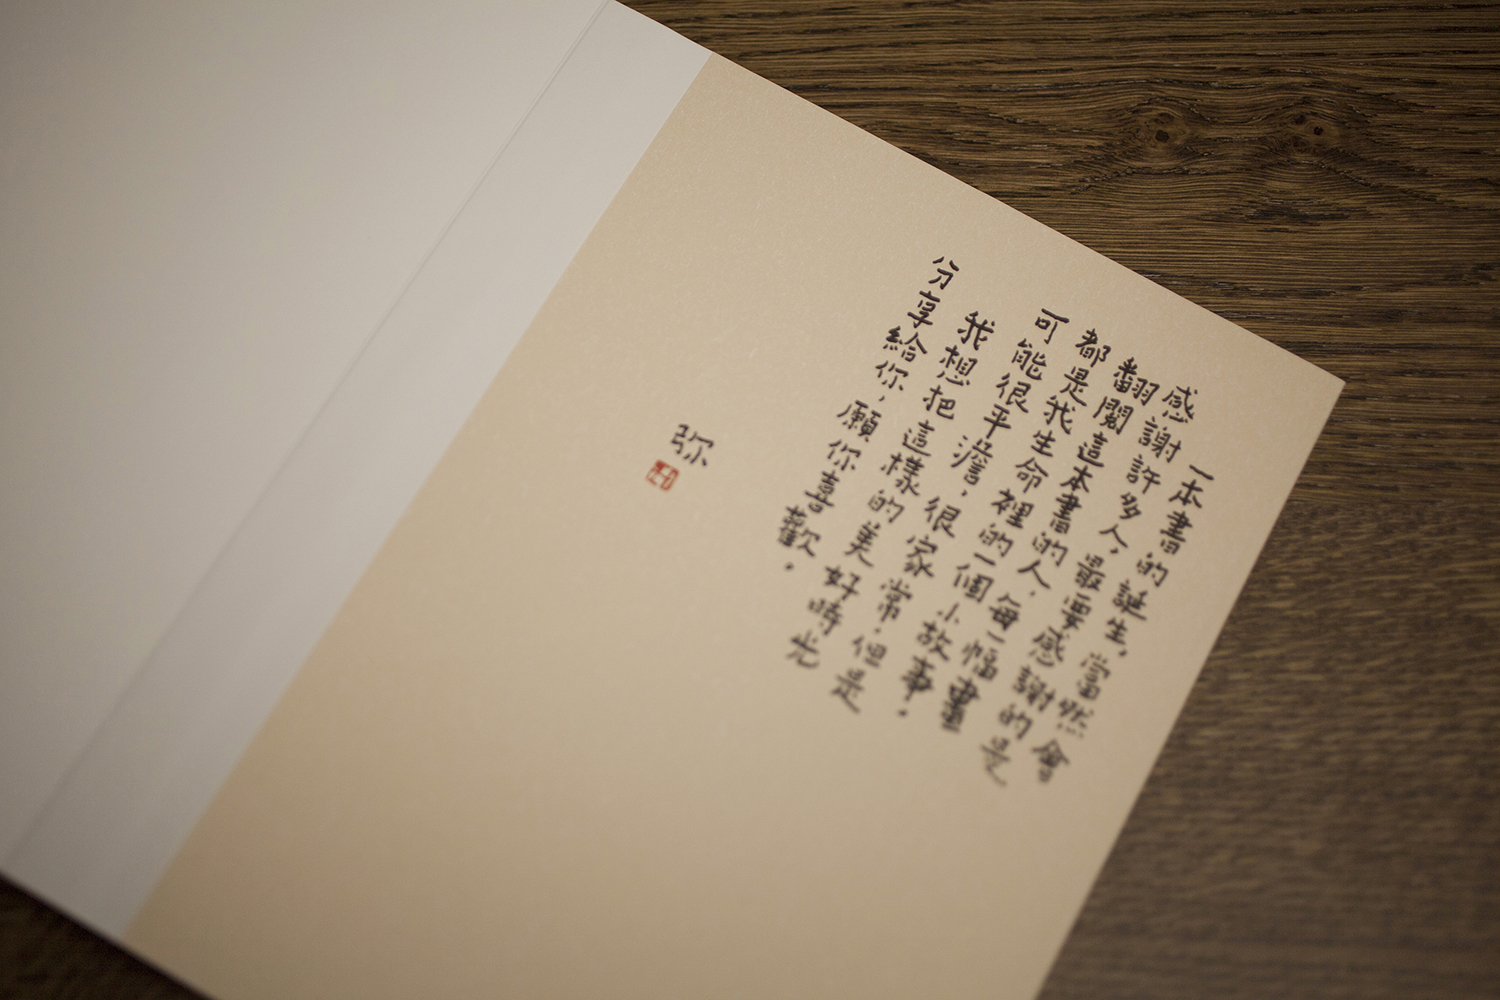 一本書的誕生,當然會
感謝許多人,最要感謝的是
翻閱這本書的人,每一幅畫
都是我生命裡的一個小故事。
可能很平澹,很家常,但是
我想把這樣的美好時光
分享給你,願你喜歡。
弥